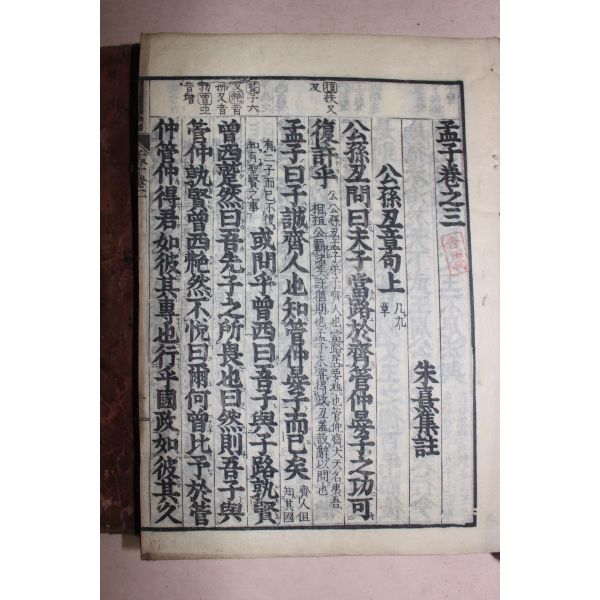 孟子卷之三
朱熹集註
公孫丑章句上 凡九章
公孫丑問曰夫子當路於齊管仲晏子之功可
復許乎 公孫丑孟子弟子齊人也當路居要地也管仲齊大夫名夷吾
相桓公霸諸侯許猶期也孟子未嘗得政丑蓋設辭以問也
孟子曰子誠齊人也知管仲晏子而已矣 齊人但知其國
有二子而已不復知有聖賢之事 或問乎曾西曰吾子與子路孰賢
曾西蹵然曰吾先子之所畏也曰然則吾子與
管仲孰賢曾西艴然不悅曰爾何曾比予於管
仲管仲得君如彼其專也行乎國政如彼其久